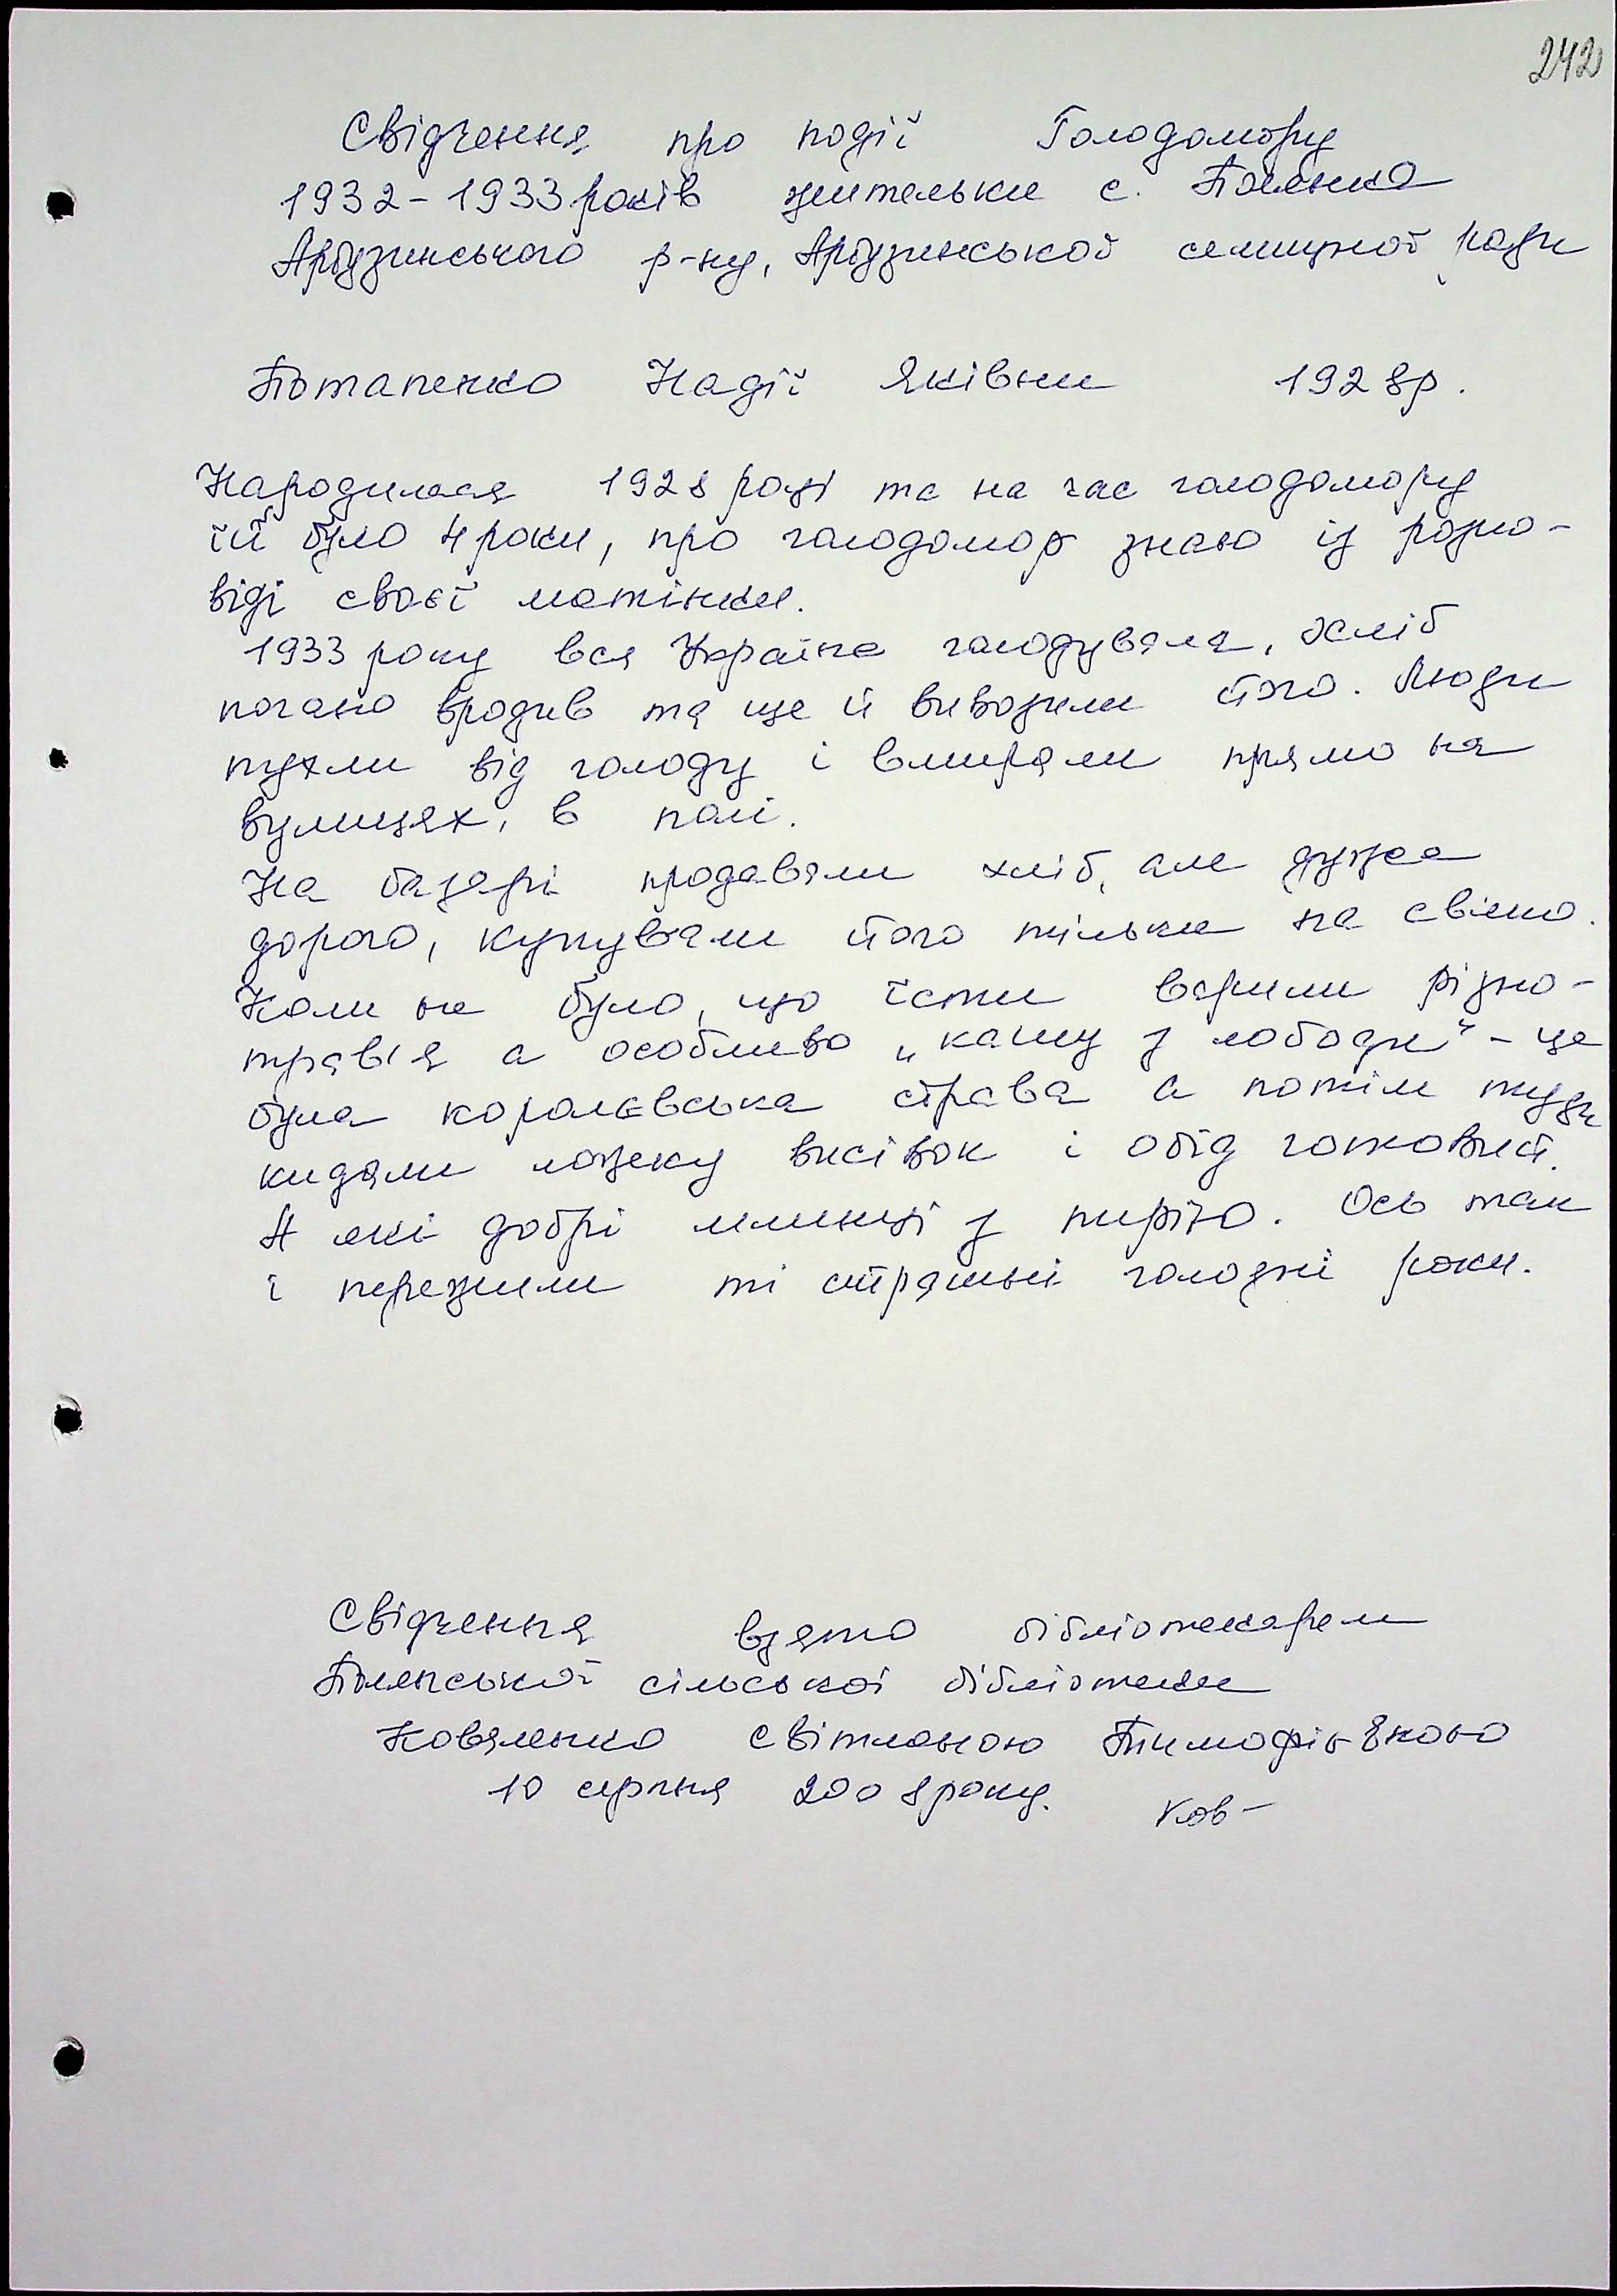 242
Свідчення про події Голодомору
1932-1933 років жительки с. Полянка
Арбузинського р-ну, Арбузинської селищної ради
Потапенко Надії Яківни 1928р.
Народилася 1928 році та на час голодомору
їй було 4 роки, про голодомор знаю із розпо-
віді своєї матінки.
1933 року вся Україна голодувала, хліб
погано вродив та ще й вивозили його. Люди
пухли від голоду і вмирали прямо на
вулицях, в полі.
На базарі продавали хліб, але дуже
дорого, купували його тільки на свято.
Коли не було, що їсти варили різно-
трав'я а особливо „кашу з лободи" - це
була королєвська страва а потім туди
кидали ложку висівок і обід готовий.
А які добрі млинці з пирію. Ось так
і пережили ті страшні голодні роки.
Свідчення взято бібліотекарем
Полянської сільської бібліотеки
Коваленко Світланою Тимофіївною
10 серпня 2008 року. Ков-